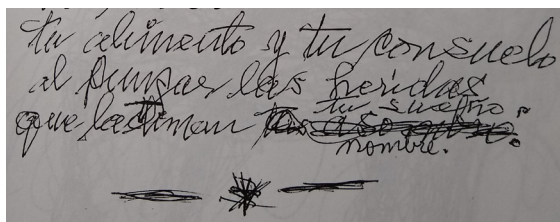 tu alimento y tu consuelo
al punsar las heridas
que lastiman tu sueño
nombre.